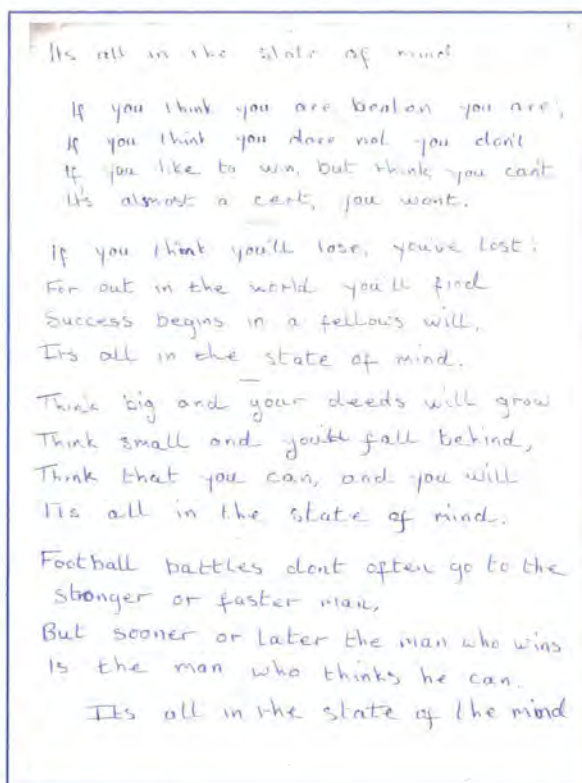 Its all in the state of mind
If you think you are beaten you are,
If you think you dare not you don't
If you like to win, but think you can't
It's almost a cert, you wont.
If you think you'll lose, you've lost;
For out in the world you'll find
Success begins in a fellow's will,
Its all in the state of mind.
Think big and your deeds will grow
Think small and you'll fall behind,
Think that you can, and you will
Its all in the state of mind.
Football battles dont often go to the
stronger or faster man,
But sooner or later the man who wins
Is the man who thinks he can.
Its all in the state of the mind